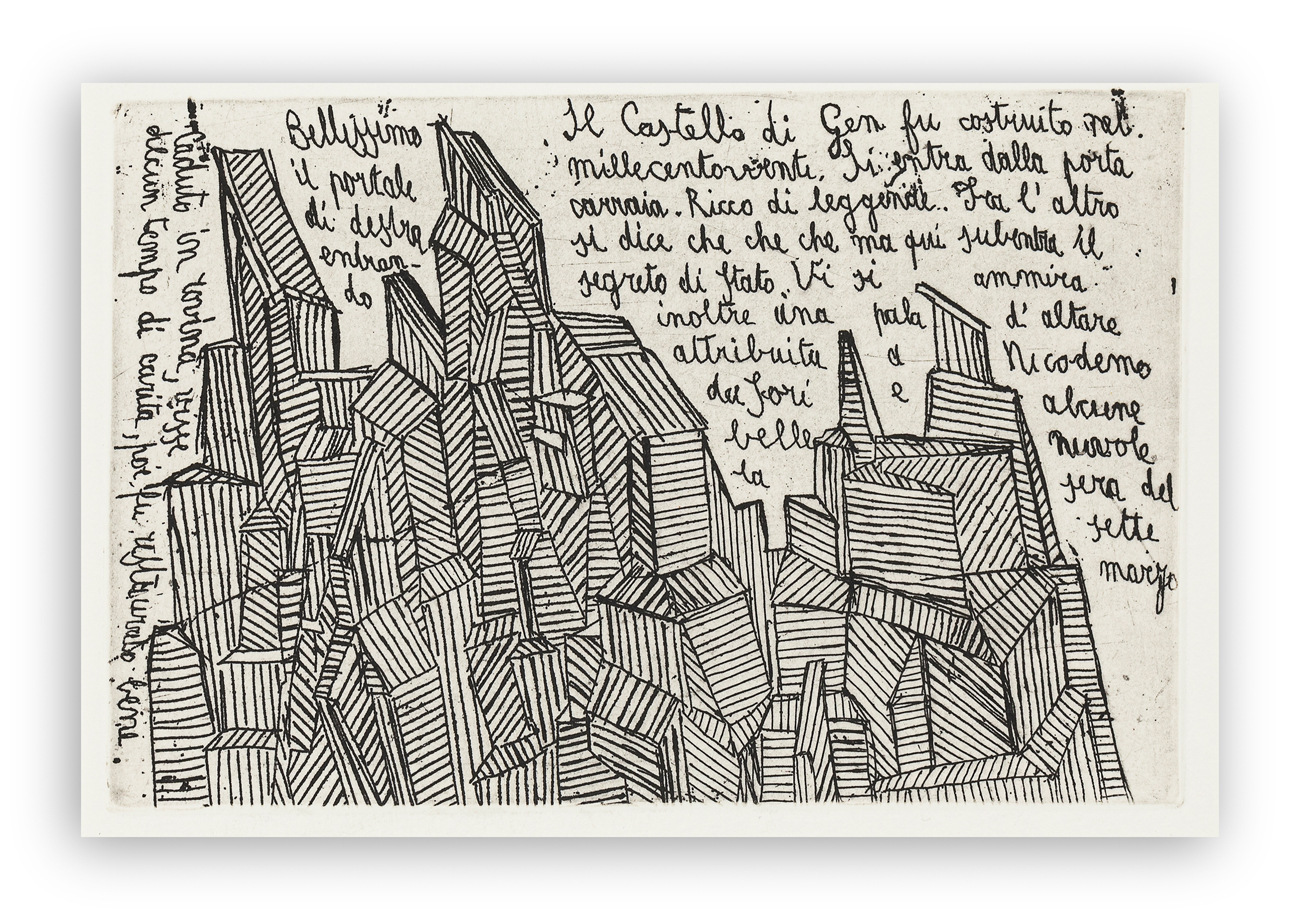 Caduto in rovina, visse
alcun tempo di carità, poi fu restaurato
Bellissimo
il portale
di destra
entran-
do
Il Castello di Gen fu costruito nel.
millecentoventi. Si entra dalla porta
carraia. Ricco di leggende.. Fra l' altro
si dice che che che ma qui subentra il
segreto di Stato. Vi si ammira
inoltre una pala d' altare
attribuita a Nicodemo
da Forì e alcune
belle nuvole
la sera del
sette
marzo